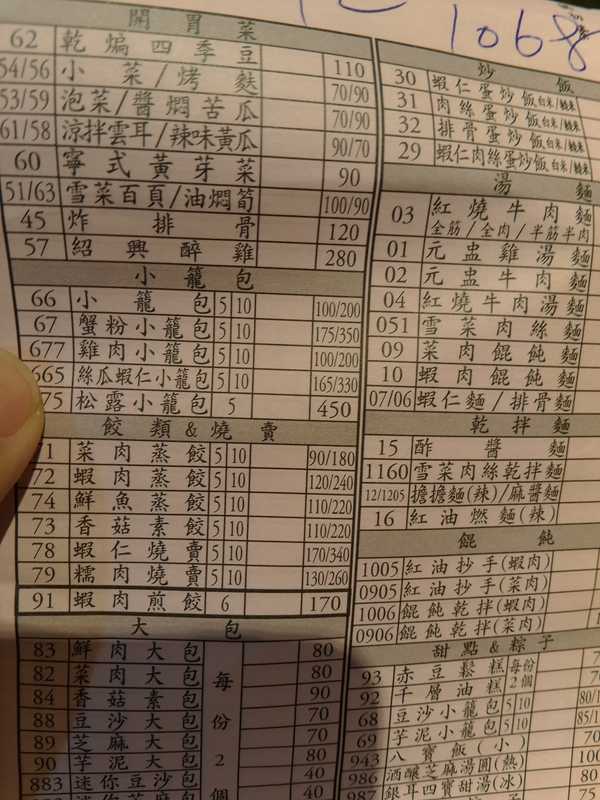 1068
開胃菜
62 乾煸四季豆 110
54/56 小菜/烤麩 70/90
53/59 泡菜/醬燜苦瓜 70/90
61/58 涼拌雲耳/辣味黃瓜 90/70
60 寧式黃芽菜 90
51/63 雪菜百頁/油燜筍 100/90
45 炸排骨 120
57 紹興醉雞 280
小籠包
66 小籠包 5 10 100/200
67 蟹粉小籠包 5 10 175/350
677 雞肉小籠包 5 10 100/200
665 絲瓜蝦仁小籠包 5 10 165/330
75 松露小籠包 5 450
餃類&燒賣
71 菜肉蒸餃 5 10 90/180
72 蝦肉蒸餃 5 10 120/240
74 鮮魚蒸餃 5 10 110/220
73 香菇素餃 5 10 110/220
78 蝦仁燒賣 5 10 170/340
79 糯肉燒賣 5 10 130/260
91 蝦肉煎餃 6 170
大包
83 鮮肉大包 80
82 菜肉大包 80
84 香菇素包 90
88 豆沙大包 70
89 芝麻大包 70
90 芋泥大包 80
883 迷你豆沙包 40
40
每份2個
炒飯
30 蝦仁蛋炒飯 白米/糙米
31 肉絲蛋炒飯 白米/糙米
32 排骨蛋炒飯 白米/糙米
29 蝦仁肉絲蛋炒飯 白米/糙米
湯麵
03 紅燒牛肉麵
全筋/全肉/半筋半肉
01 元盅雞湯麵
02 元盅牛肉麵
04 紅燒牛肉湯麵
051 雪菜肉絲麵
09 菜肉餛飩麵
10 蝦肉餛飩麵
07/06 蝦仁麵/排骨麵
乾拌麵
15 酢醬麵
1160 雪菜肉絲乾拌麵
12/1205 擔擔麵(辣)/麻醬麵
16 紅油燃麵(辣)
餛飩
1005 紅油抄手(蝦肉)
0905 紅油抄手(菜肉)
1006 餛飩乾拌(蝦肉)
0906 餛飩乾拌(菜肉)
甜點&粽子
93 赤豆鬆糕 每份
92 千層油糕 2個
68 豆沙小籠包 5 10
69 芋泥小籠包 5 10
943 八寶飯(小) 100
986 酒釀芝麻湯圓(熱)
987 銀耳四寶甜湯(冰)